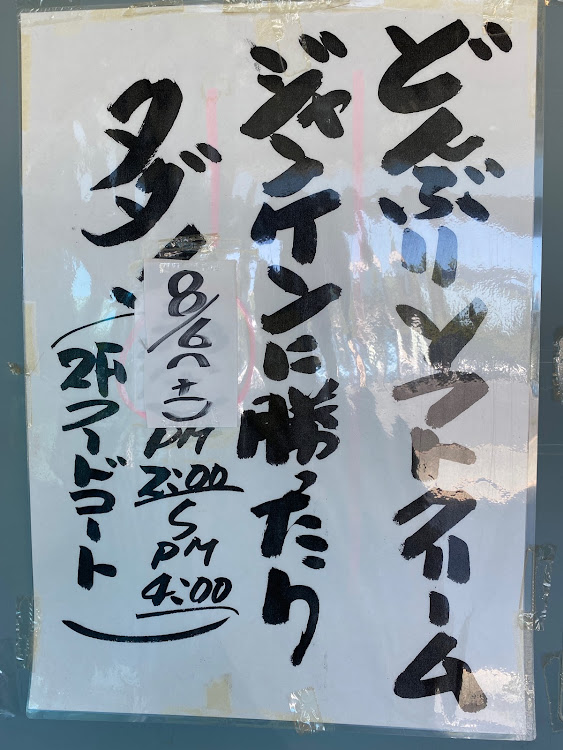 どんぶりソフトクリーム
ジャンケンに勝ったり
タダ
8/6(土)
PM
2:00
〜
PM
4:00
2Fフードコート